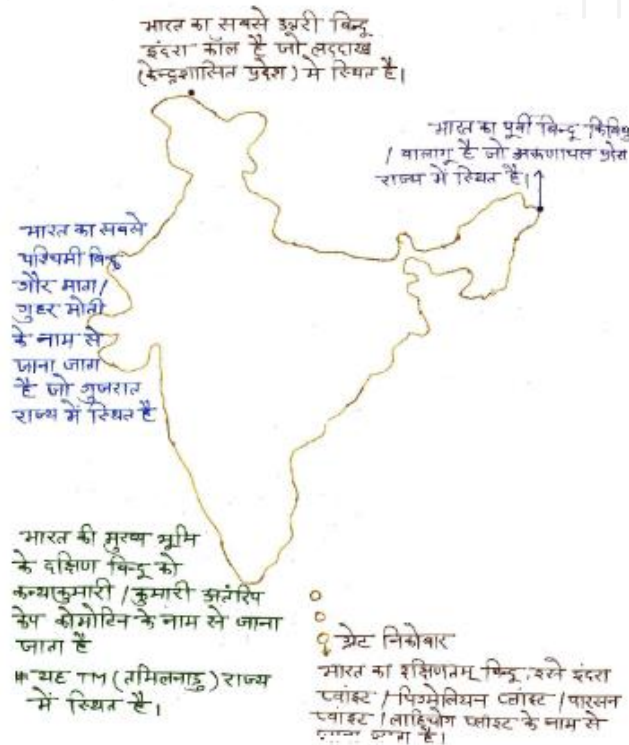 भारत का सबसे उत्तरी बिन्दू
इंदरा कॉल है जो लद्दाख
(केन्द्रशासित प्रदेश) में स्थित है।
भारत का पूर्वी बिन्दू किबिथु
/ वालागू है जो अरूणाचल प्रदेश
राज्य में स्थित है।
भारत का सबसे
पश्चिमी बिन्दु
गौर माता/
गुहर मोती
के नाम से
जाना जाता
है जो गुजरात
राज्य में स्थित है
भारत की मुख्य भूमि
के दक्षिण बिन्दू को
कन्याकुमारी / कुमारी अतंरिप
केप कोमोरिन के नाम से जाना
जाता है
# यह TM (तमिलनाडु) राज्य
में स्थित है।
ग्रेट निकोबार
भारत का दक्षिणतम् बिन्दू, इसे इंदरा
प्वांइट / पिग्मेलियन प्वांइट / पारसन
प्वांइट / लाहियोग प्वांइट के नाम से
जाना जाता है।